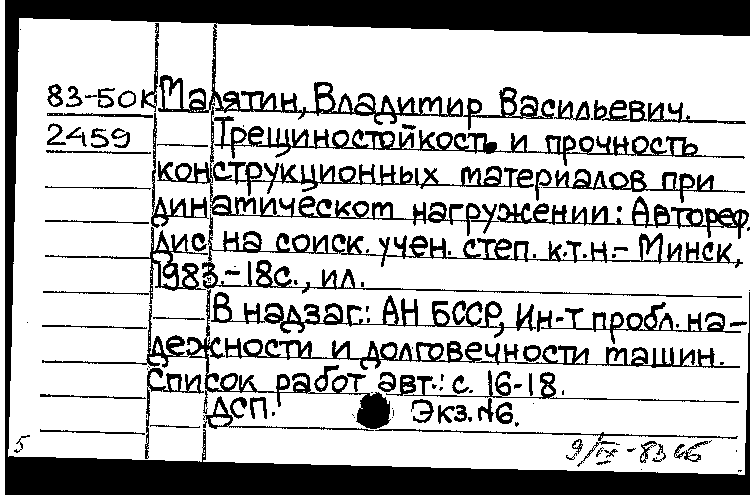 83-50К Малятин, Владимир Васильевич.
2459 Трещиностойкость и прочность
конструкционных материалов при
динатическот нагружении: Автореф.
дис на соиск. учен. степ. к.т.н.- Минск,
1983.-18с., ил.
В надзаг.: АН БССР, Ин-т пробл. на-
дежности и долговечности машин.
Список работ авт.: с. 16-18.
ДСП. Экз.№6.
5 9/IX-83